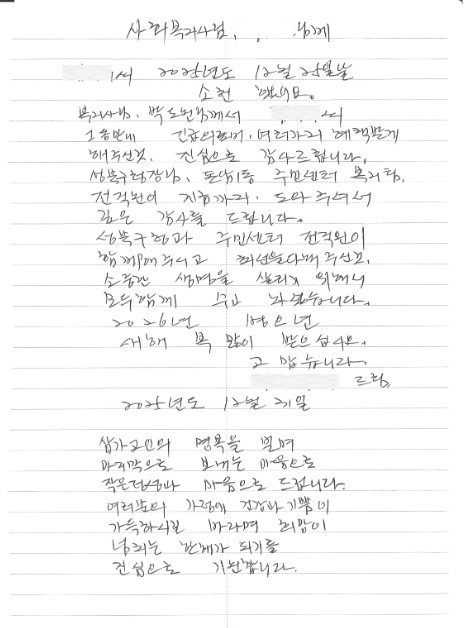 사회복지사님, . . 님께
서 2025년도 12월 25일날
소천 했어요.
복지사님, 박도원님께서 씨
그동안에 긴급의료비, 여러가지 혜택받게
해주신것. 진심으로 감사드립니다.
성북구청장님, 돈암1동 주민센터 복지팀,
전직원이 지금까지. 도와주셔서
깊은 감사를 드립니다.
성북구청과 주민센터 전직원이
함께해주시고 최선을다해주신것,
소중한 생명을 살리기 위해서
모두함께 수고 하셨습니다.
2026년 병오년
새해 복 많이 받으십시요.
고맙습니다.
드림.
2025년도 12월 31일
삼가고인의 명복을 빌며
마지막으로 보내는 마음으로
작은정성과 마음으로 드립니다.
여러분의 가정에 건강과 기쁨이
가득하시길 바라며 희망이
넘치는 관계가 되기를
진심으로 기원합니다.